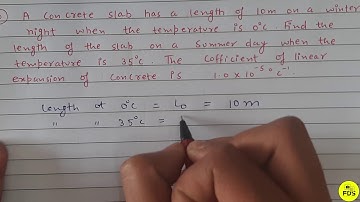 A Concrete slab has a length of 10m on a winter
night when the temperature is 0°c Find the
length of the slab on a Summer day when the
temperature is 35°c. The Cofficient of linear
expansion of Concrete is 1.0 x 10⁻⁵ °c⁻¹
Length at 0°c = L₀ = 10m
" " 35°c =
FDS